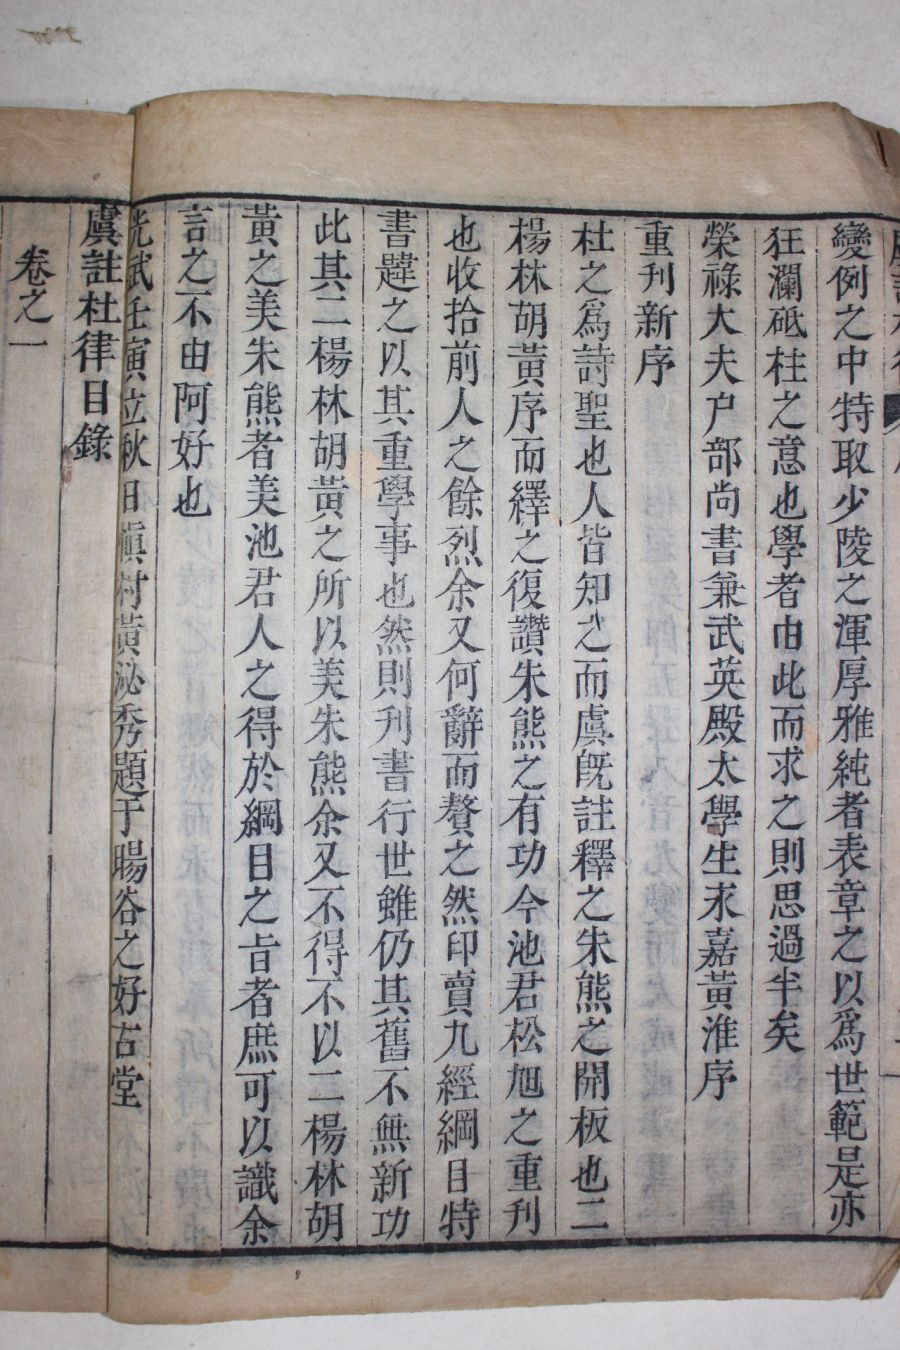 變例之中特取少陵之渾厚雅純者表章之以爲世範是亦
狂瀾砥柱之意也學者由此而求之則思過半矣
榮祿大夫户部尚書兼武英殿大學生永嘉黃淮序
重刊新序
杜之爲詩聖也人皆知之而虞旣註釋之朱熊之開板也二
楊林胡黃序而繹之復讚朱熊之有功今池君松旭之重刊
也收拾前人之餘烈余又何辭而贅之然印賣九經綱目特
書韙之以其重學事也然則刋書行世雖仍其舊不無新功
此其二楊林胡黃之所以美朱熊余又不得不以二楊林胡
黃之美朱熊者美池君人之得於綱目之旨者庶可以識余
言之不由阿好也
光武壬寅立秋日愼村黃泌秀題于暘谷之好古堂
虞註杜律目錄
卷之一